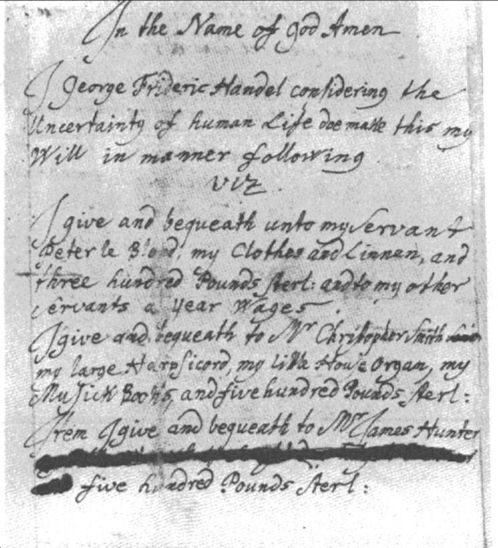 In the Name of god Amen
I George Frideric Handel considering the
Uncertainty of human Life doe make this my
Will in manner following
viz
I give and bequeath unto my Servant
Peter le Blond, my Clothes and Linnen, and
three hundred Pounds sterl: and to my other
Servants a year Wages.
I give and bequeath to Mr Christopher Smith
my large Harpsicord, my little House Organ, my
Musick Books, and five hundred Pounds sterl:
Item I give and bequeath to Mr James Hunter
five hundred Pounds sterl: